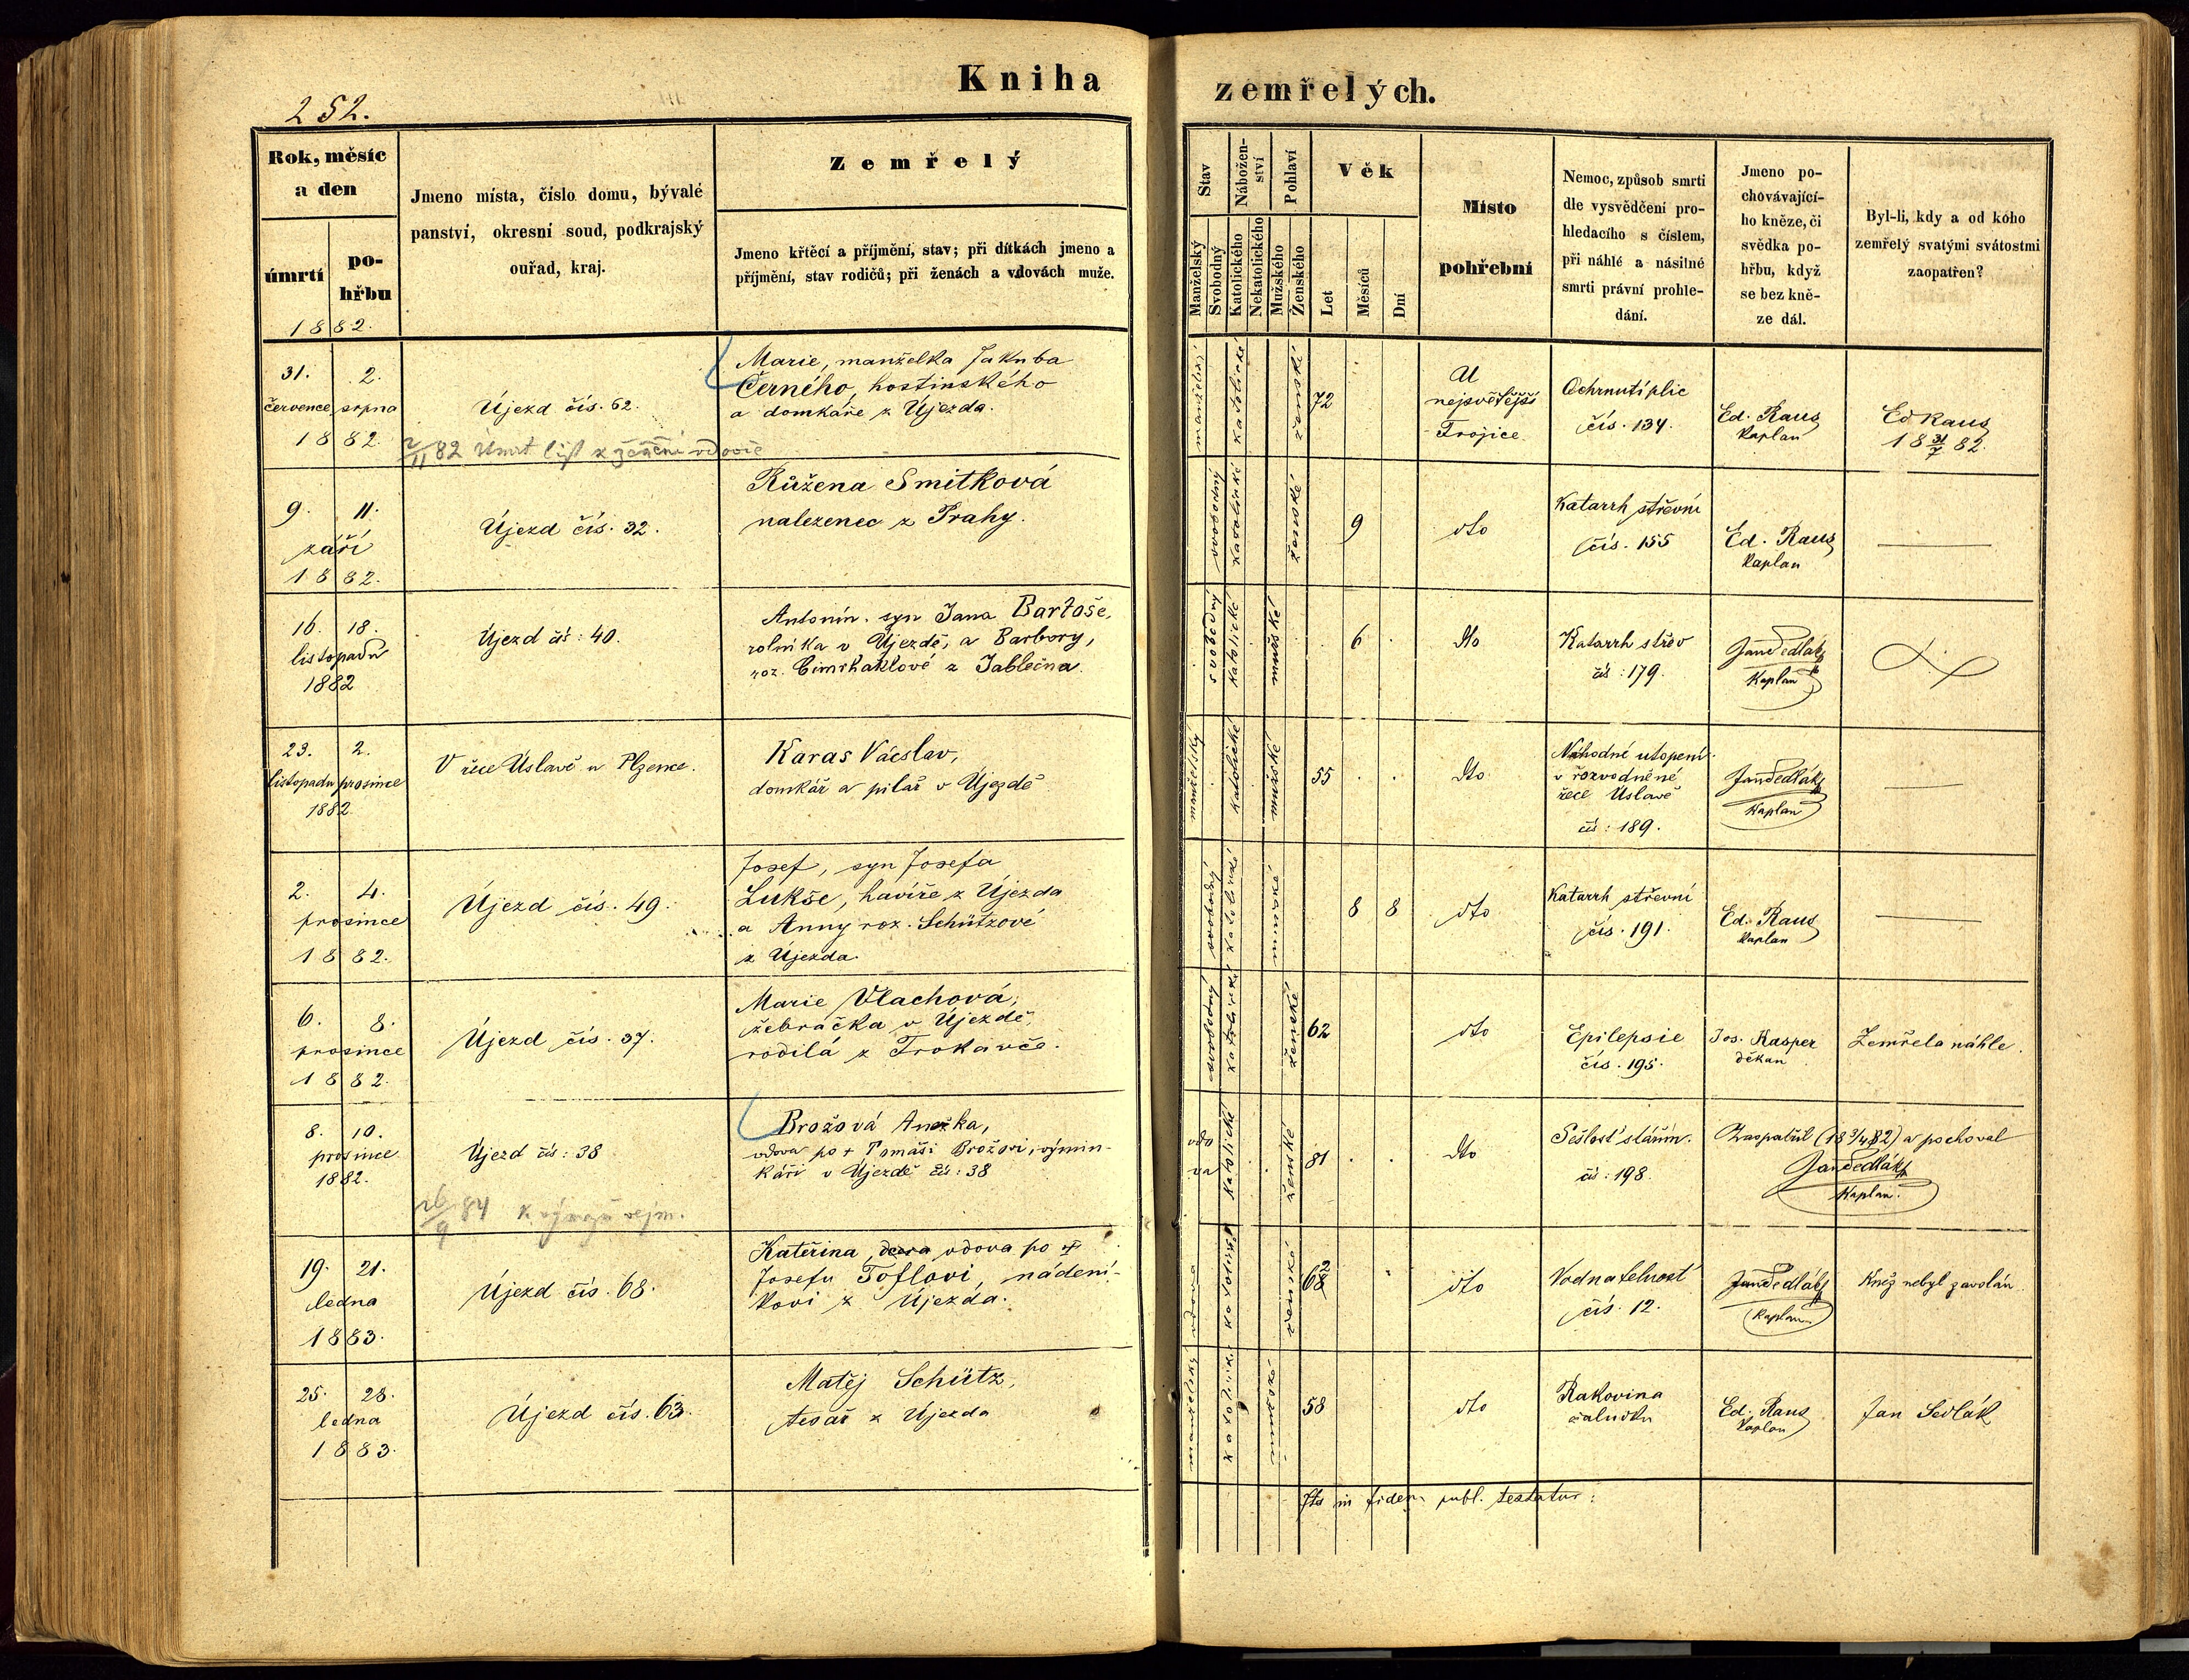 252.
Kniha zemřelých.
Rok, měsíc
a den
úmrtí
po-
hřbu
1882.
Jmeno místa, číslo domu, bývalé
panství, okresní soud, podkrajský
ouřad, kraj.
Zemřelý
Jmeno křtěcí a příjmění, stav; při dítkách jmeno a
příjmění, stav rodičů; při ženách a vdovách muže.
Stav
Manželský
Svobodný
Nábožen-
ství
Katolického
Nekatolického
Pohlaví
Mužského
Ženského
Věk
Let
Měsíců
Dní
Místo
pohřební
Nemoc, způsob smrti
dle vysvědčení pro-
hledacího s číslem,
při náhlé a násilné
smrti právní prohle-
dání.
Jmeno po-
chovávající-
ho kněze, či
svědka po-
hřbu, když
se bez kně-
ze dál.
Byl-li, kdy a od koho
zemřelý svatými svátostmi
zaopatřen?
31. 2.
července srpna
1882.
Újezd čís. 62.
2/11 82 Úmrt list
Marie, manželka Jakuba
Černého, hostinského
a domkáře z Újezda.
manželský
katolické
ženské
72
U
nejsvětější
Trojice
Ochrnutí plic
čís. 134.
Ed. Raus
Kaplan
Ed Raus
18 31/7 82.
9. 11.
září
1882.
Újezd čís. 32.
Růžena Smitková
nalezenec z Prahy.
svobodný
katolické
ženské
9
dto
Katarrh střevní
čís. 155
Ed. Raus
Kaplan
16. 18.
listopadu
1882
Újezd čís: 40.
Antonín. syn Jana Bartoše,
rolníka v Újezdě, a Barbory,
roz. z Jablečna
svobodný
katolické
mužské
6
dto
Katarrh střev
čís: 179.
Jan Sedlák
Kaplan
23. 2.
listopadu prosince
1882.
V řece Úslavě u Plzence.
Karas Václav,
domkář a pilař v Újezdě
manželský
katolické
mužské
55
dto
Náhodné utopení
v rozvodněné
řece Úslavě
čís: 189.
Jan Sedlák
Kaplan
2. 4.
prosince
1882.
Újezd čís. 49.
Josef, syn Josefa
Lukše, havíře z Újezda
a Anny roz. Schützové
z Újezda.
svobodný
katolické
mužské
8 8
dto
Katarrh střevní
čís. 191.
Ed. Raus
Kaplan
6. 8.
prosince
1882.
Újezd čís. 37.
Marie Vlachová,
žebračka v Újezdě,
rodilá z Trokavče.
svobodný
katolické
ženské
62
dto
Epilepsie
čís. 195.
Jos. Kasper
děkan
Zemřela náhle.
8. 10.
prosince
1882.
Újezd čís: 38
26/9 84
Brožová Anežka,
vdova po + Tomáši Brožovi, výmin-
káři v Újezdě čís: 38
vdo
va
katolické
ženské
81
dto
Sešlosť stářím.
čís: 198.
Zaopatřil (18 3/4 82) a pochoval
Jan Sedlák
Kaplan.
19. 21.
ledna
1883.
Újezd čís. 68.
Kateřina, dcera vdova po +
Josefu Toflovi, nádení-
kovi z Újezda.
vdova
katolické
ženské
68
2
dto
Vodnatelnosť
čís. 12.
Jan Sedlák
Kaplan
Kněz nebyl zavolán.
25. 28.
ledna
1883.
Újezd čís. 63.
Matěj Schütz,
tesař z Újezda
manželský
katolické
mužské
58
dto
Rakovina
žaludku
Ed. Raus
Kaplan
Jan Sedlák
Ita in fidem publ. testatur: